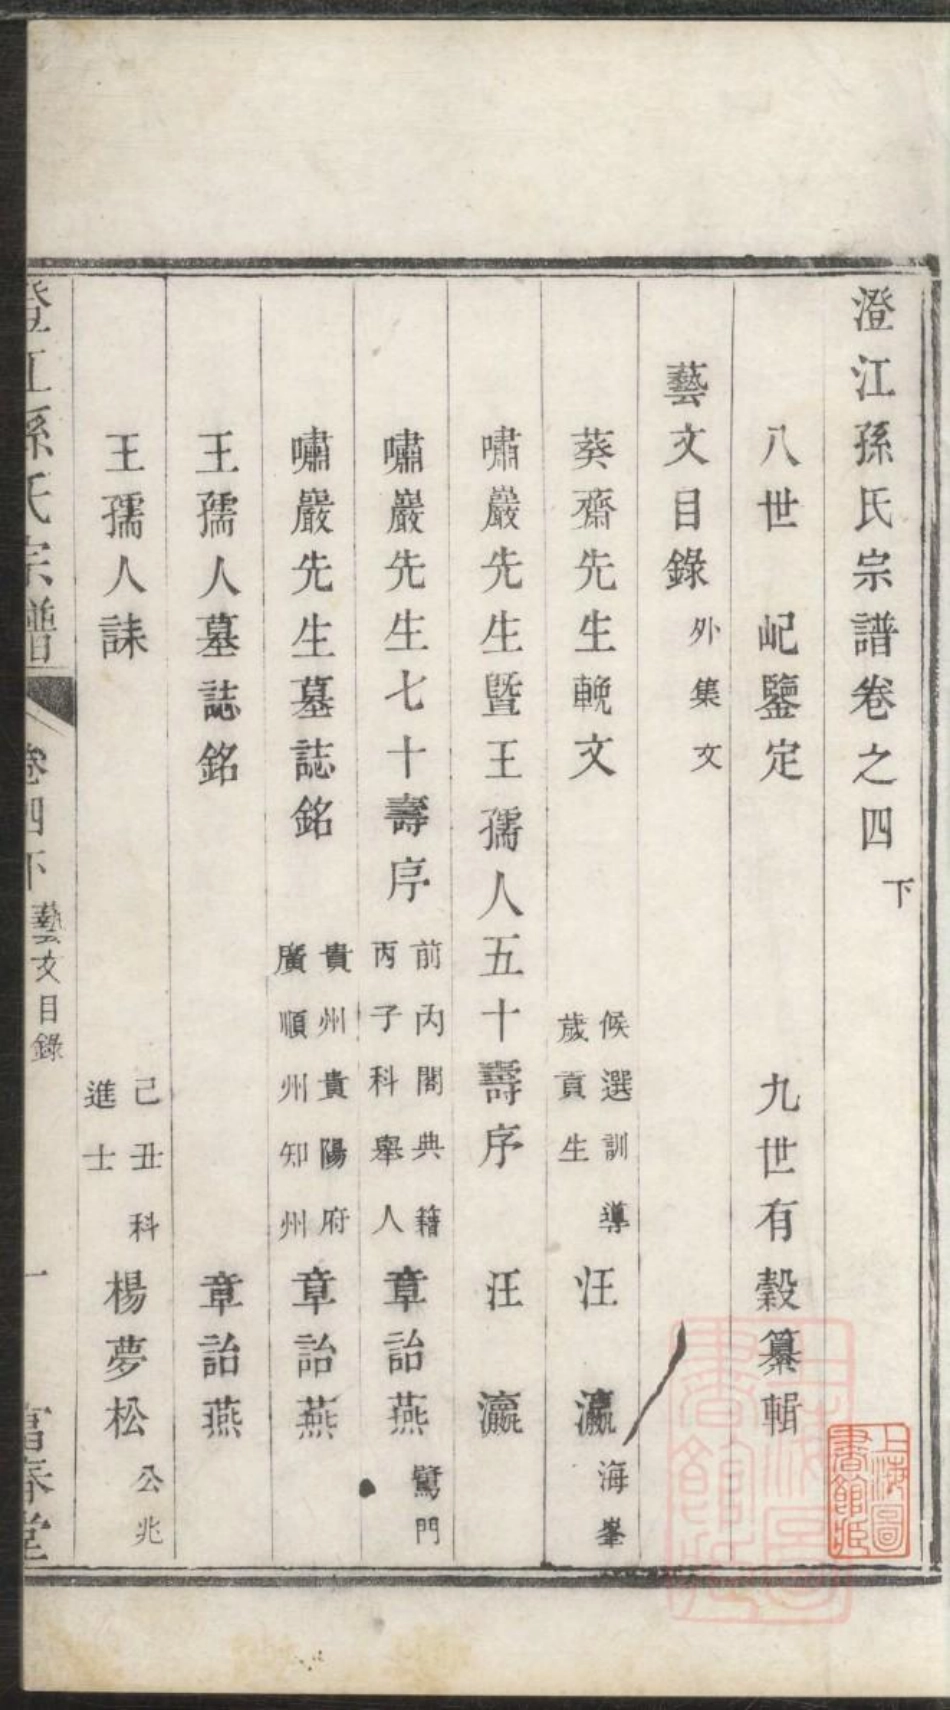 澄江孫氏宗譜卷之四下
八世 屺鑒定 九世有穀纂輯
藝文目錄 外集文
葵齋先生輓文 候選訓導歲貢生 汪 瀛 海峯
嘯巖先生暨王孺人五十壽序 汪 瀛
嘯巖先生七十壽序 前內閣典籍丙子科舉人 章詒燕 鷺門
嘯巖先生墓誌銘 貴州貴陽府廣順州知州 章詒燕
王孺人墓誌銘 章詒燕
王孺人誄 己丑科進士 楊夢松 公兆
澄江孫氏宗譜 卷四下 藝文目錄 一 富春堂
上海圖書館藏
上海圖書館藏